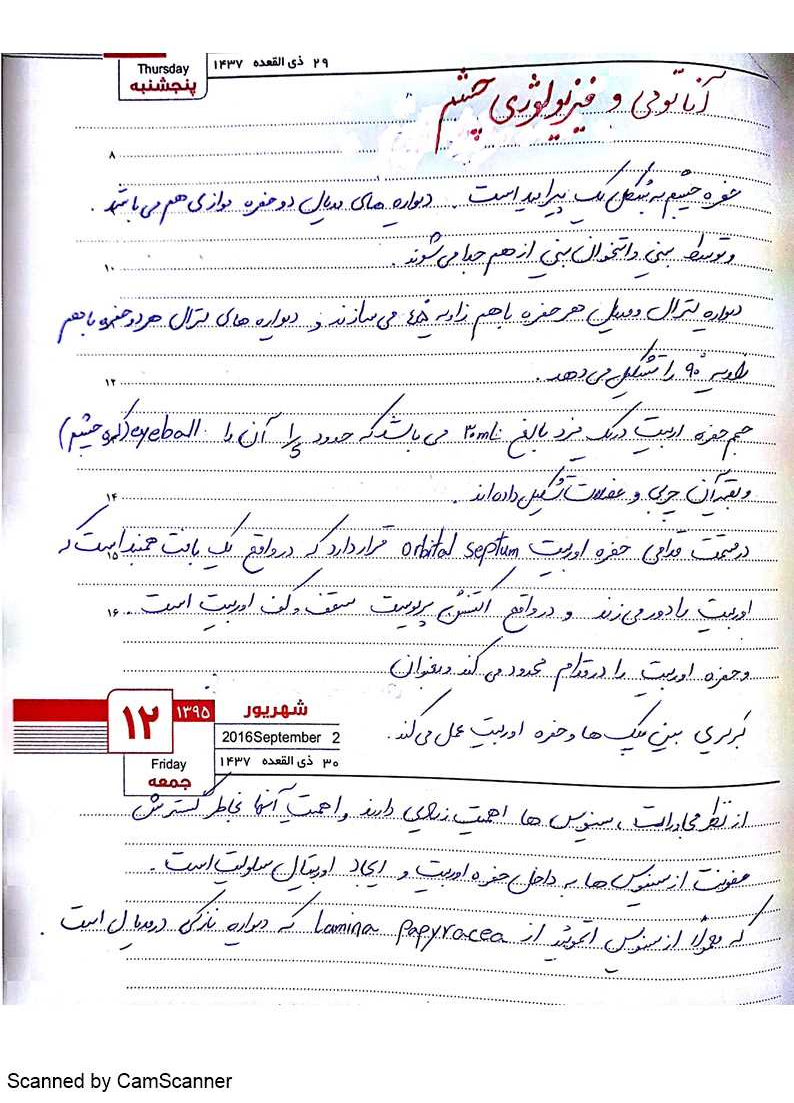 ۲۹ ذی القعده ۱۴۳۷
Thursday
پنجشنبه
آناتومی و فیزیولوژی چشم
۸
حفره چشم به شکل یک پیرامید است . دیواره های مدیال دو حفره موازی هم می باشد .
و توسط بینی و استخوان بینی از هم جدا می شوند .
۱۰
دیواره لترال و مدیال هر حفره با هم زاویه ۴۵° می سازند و دیواره های لترال هر دو حفره با هم
زاویه ۹۰° را تشکیل می دهد .
۱۲
حجم حفره اربیت در یک فرد بالغ ۳۰ml می باشد که حدود را آن را eyeball (کره چشم)
و بقیه آن چربی و عضلات تشکیل داده اند .
۱۴
در قسمت قدامی حفره اوربیت orbital septum قرار دارد که در واقع یک بافت همبند است که
۱۵
اوربیت را دور می زند و در واقع اکتنشن پریوست سقف و کف اوربیت است .
۱۶
و حفره اوربیت را در قدام محدود می کند و بعنوان
بریری بین پلک ها و حفره اوربیت عمل می کند .
۱۲
۱۳۹۵
شهریور
2016September 2
۳۰ ذی القعده ۱۴۳۷
Friday
جمعه
از نظر مجاورات ، سینوس ها اهمیت زیادی دارند و اهمیت آنها بخاطر گسترش
عفونت از سینوس ها به داخل حفره اوربیت و ایجاد اوربیتال سلولیت است .
که معمولا از سینوس اتموئید از Lamina Papyracea که دیواره نازکی در مدیال است .
Scanned by CamScanner